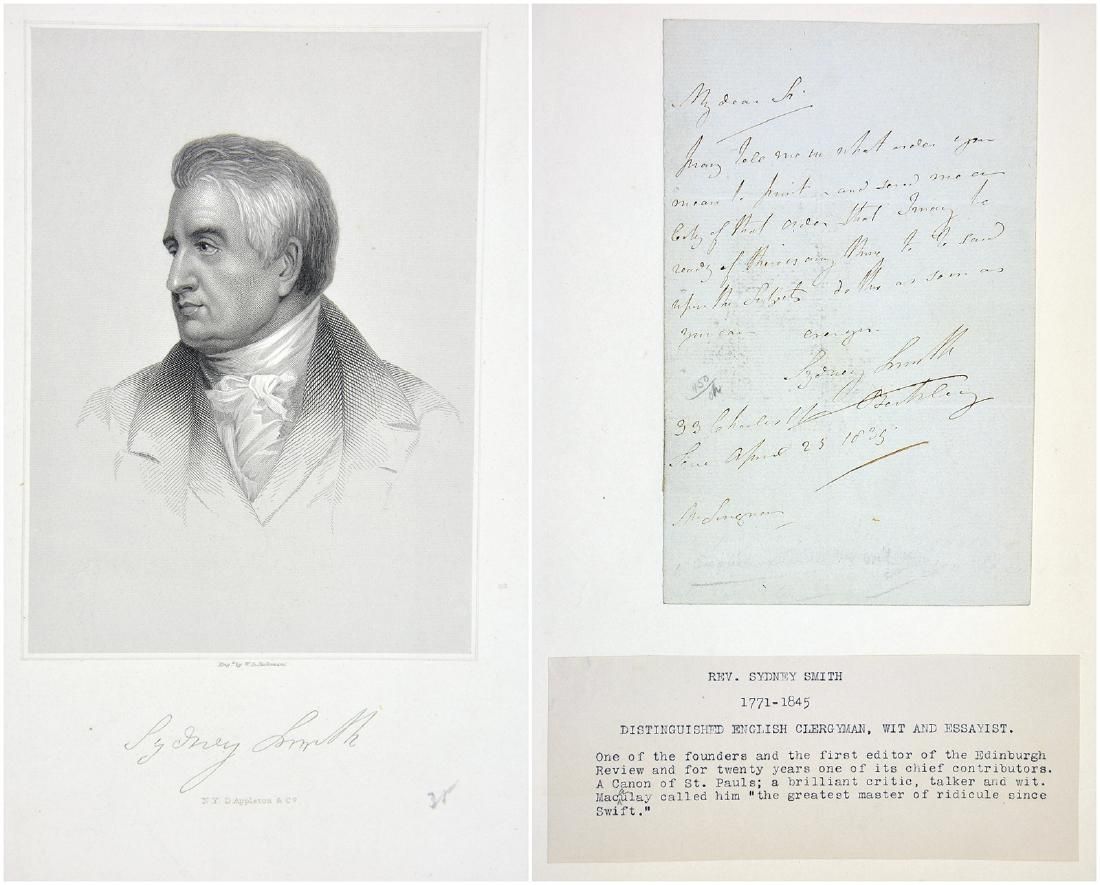 Engd. by W.G. Jackman
Sydney Smith
N.Y. D. Appleton & Co.
25
My dear Sir
pray tell me in what order you
mean to print and send me a
copy of that order that I may be
ready if there is any thing to be said
upon the Subjects do this as soon as
you can
Sydney Smith
450
33 Charles St Berkley
Square April 25 1835
REV. SYDNEY SMITH
1771-1845
DISTINGUISHED ENGLISH CLERGYMAN, WIT AND ESSAYIST.
One of the founders and the first editor of the Edinburgh
Review and for twenty years one of its chief contributors.
A Canon of St. Pauls; a brilliant critic, talker and wit.
Macaulay called him "the greatest master of ridicule since
Swift."